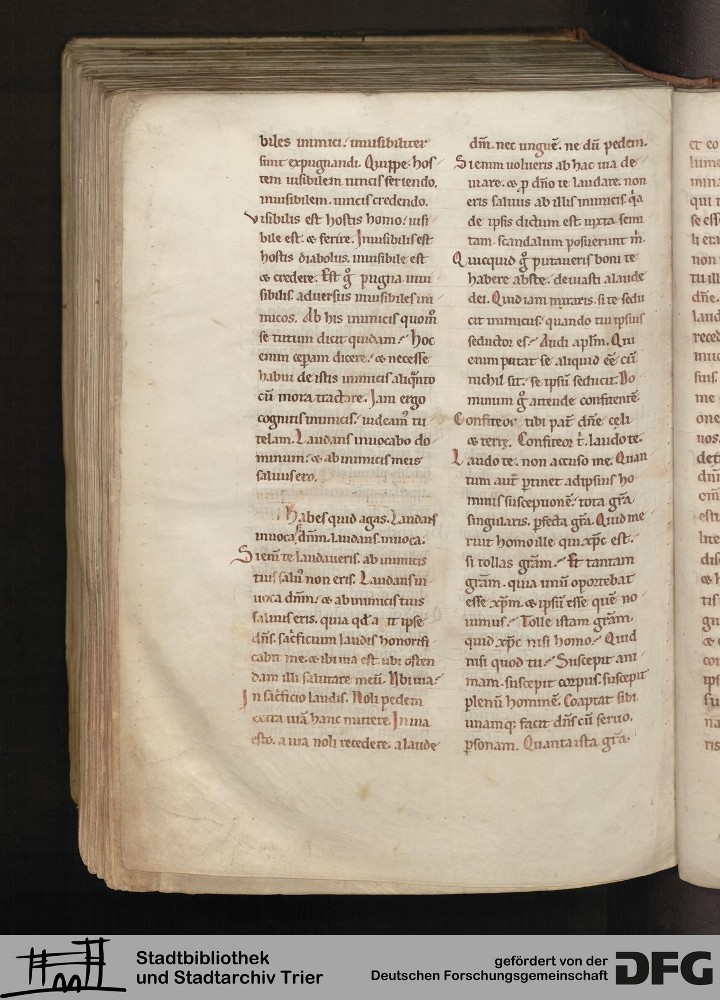 biles inimici. inuisibiliter
sunt expugnandi. Quippe hos
tem uisibilem uincis feriendo.
inuisibilem. uincis credendo.
Visibilis est hostis homo. uisi
bile est. & ferire. Inuisibilis est
hostis diabolus. inuisibile est
& credere. Est gͦ pugna inui
sibilis. aduersus inuisibiles ini
micos. Ab his inimicis quom̅
se tutum dicit quidam. Hoc
enim cęperam dicere. & necesse
habui de istis inimicis aliqͣnto
cu̅ mora tractare. Iam ergo
cognitis inimicis. uideam̅ tu
telam. Laudans inuocabo do
minum. & ab inimicis meis
saluus ero.
Habes quid agas. Laudans
inuoca. dn̅m. laudans inuoca.
Si eni̅ te laudaueris. ab inimicis
tuis saluu̅ non eris. Laudans in
uoca dn̅m. & ab inimicis tuis
saluus eris. quia qd a it ipse
dn̅s. sac̅ficium laudis honorifi
cabit me. & ibi uia est. ubi osten
dam illi salutare meu̅. Vbi uia.
In sac̅ficio laudis. Noli pedem
extra uia̅ hanc mittere. In uia
esto. a uia noli recedere. a laude
dn̅i. nec ungue̅. ne du̅ pedem.
Si enim uolueris ab hac uia de
uiare. & p̱ dn̅o te laudare. non
eris saluus ab illis inimicis. qͥa
de ipsis dictum est. iuxta semi
tam. scandalum posuerunt m̅.
Quicquid gͦ putaueris boni te
habere abste. deuiasti a laude
dei. Quid iam miraris. si te sedu
cit inimicus. quando tu ipsius
seductor es. Audi ap̅lm. Qui
enim putat se aliquid e̅e. cu̅
nichil sit. se ipsu̅ seducit. Do
minum gͦ attende confitente̅.
Confiteor tibi pat̅ dn̅e cęli
& terrę. Confiteor t̅. laudo te.
Laudo te. non accuso me. Quan
tum aut̅ p̱tinet ad ipsius ho
minis susceptione̅. tota gr̅a.
singularis. p̱fecta gr̅a. Quid me
ruit homo ille qui xp̅c est.
si tollas gr̅am. Et tantam
gr̅am. quia unu̅ oportebat
esse xp̅m. & ipsu̅ esse que̅ no
uimus. Tolle istam gr̅am.
quid xp̅c nisi homo. Quid
nisi quod tu. Suscepit ani
mam. suscepit corpus. suscepit
plenu̅ homine̅. Coaptat sibi.
unamq; facit dn̅s cu̅ seruo.
p̱sonam. Quanta ista gr̅a.
Stadtbibliothek
und Stadtarchiv Trier
gefördert von der
Deutschen Forschungsgemeinschaft
DFG